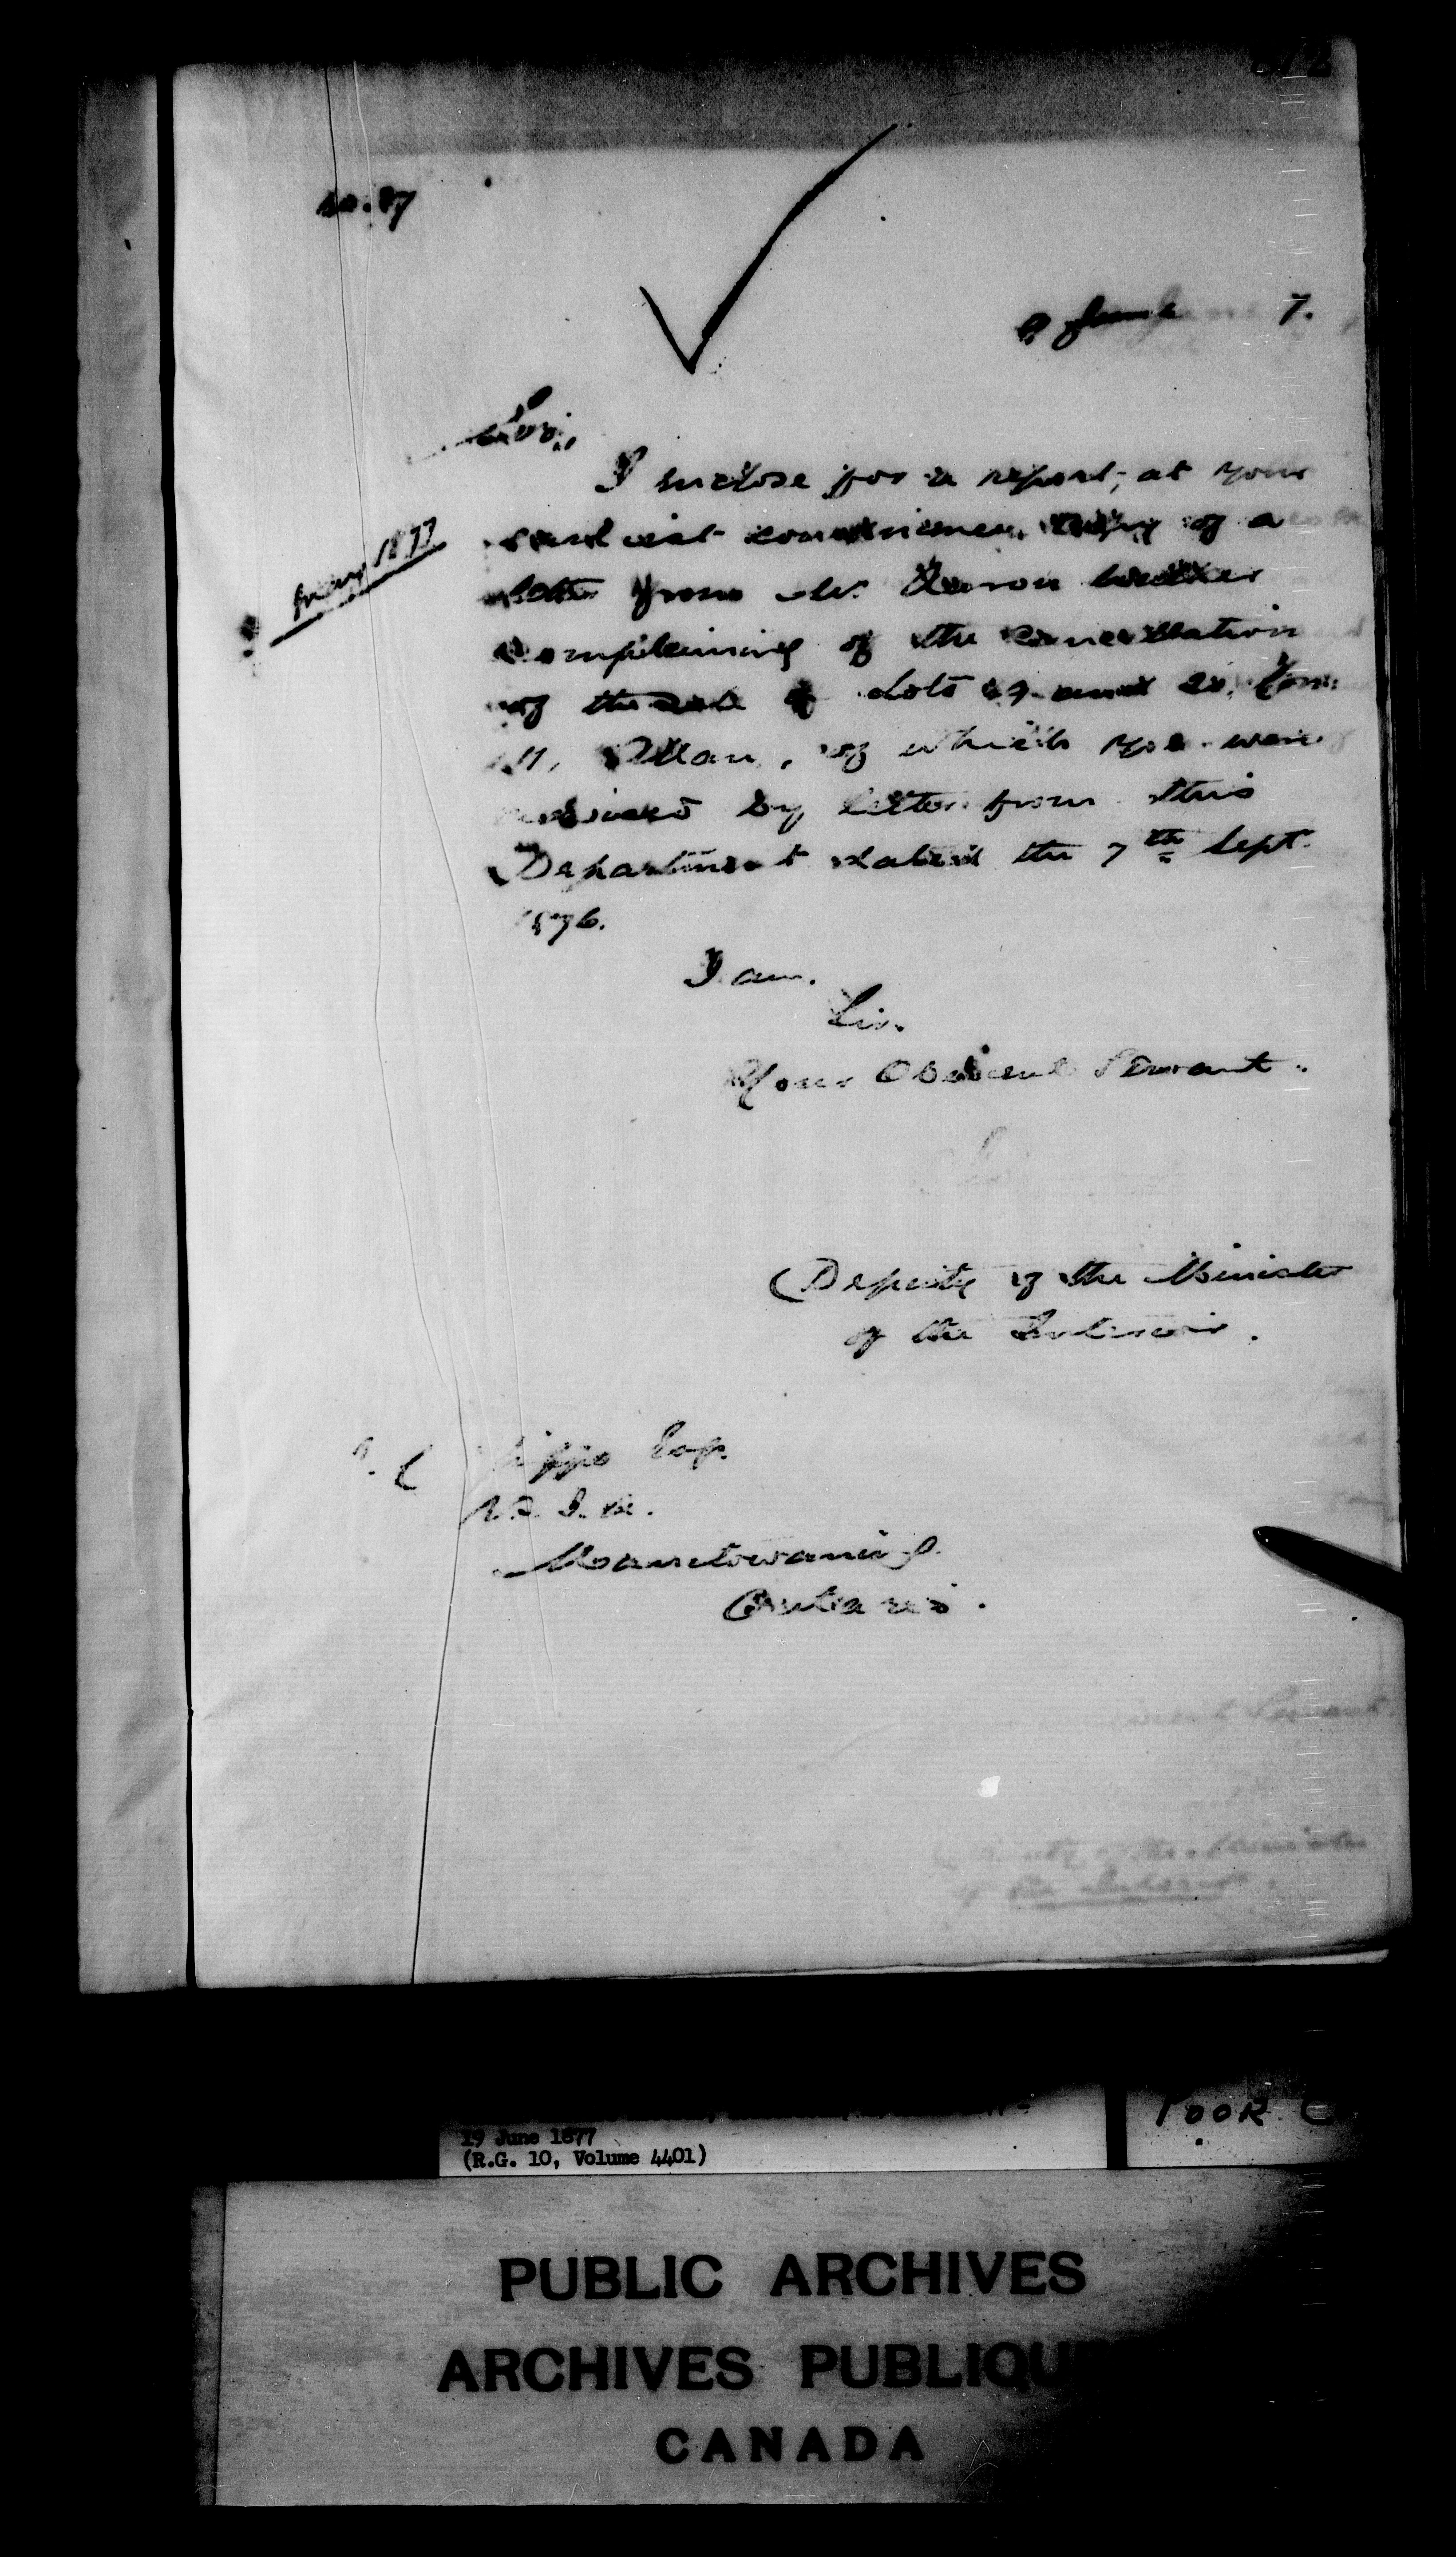 No. 87
June 7.
Sir,
I enclose for a report, at your
convenience, copy of a
letter from Mr.
complaining of the cancellation
of the sale of Lots 19 and 20, Con:
11, Allan, of which you were
advised by letter from this
Department dated the 7th Sept.
1876.
I am.
Sir.
Your Obedient Servant.
Deputy of the Minister
of the Interior.
Esq.
Manitowaning
Ontario.
1877
19 June 1877
(R.G. 10, Volume 4401)
POOR
PUBLIC ARCHIVES
ARCHIVES PUBLIQU
CANADA